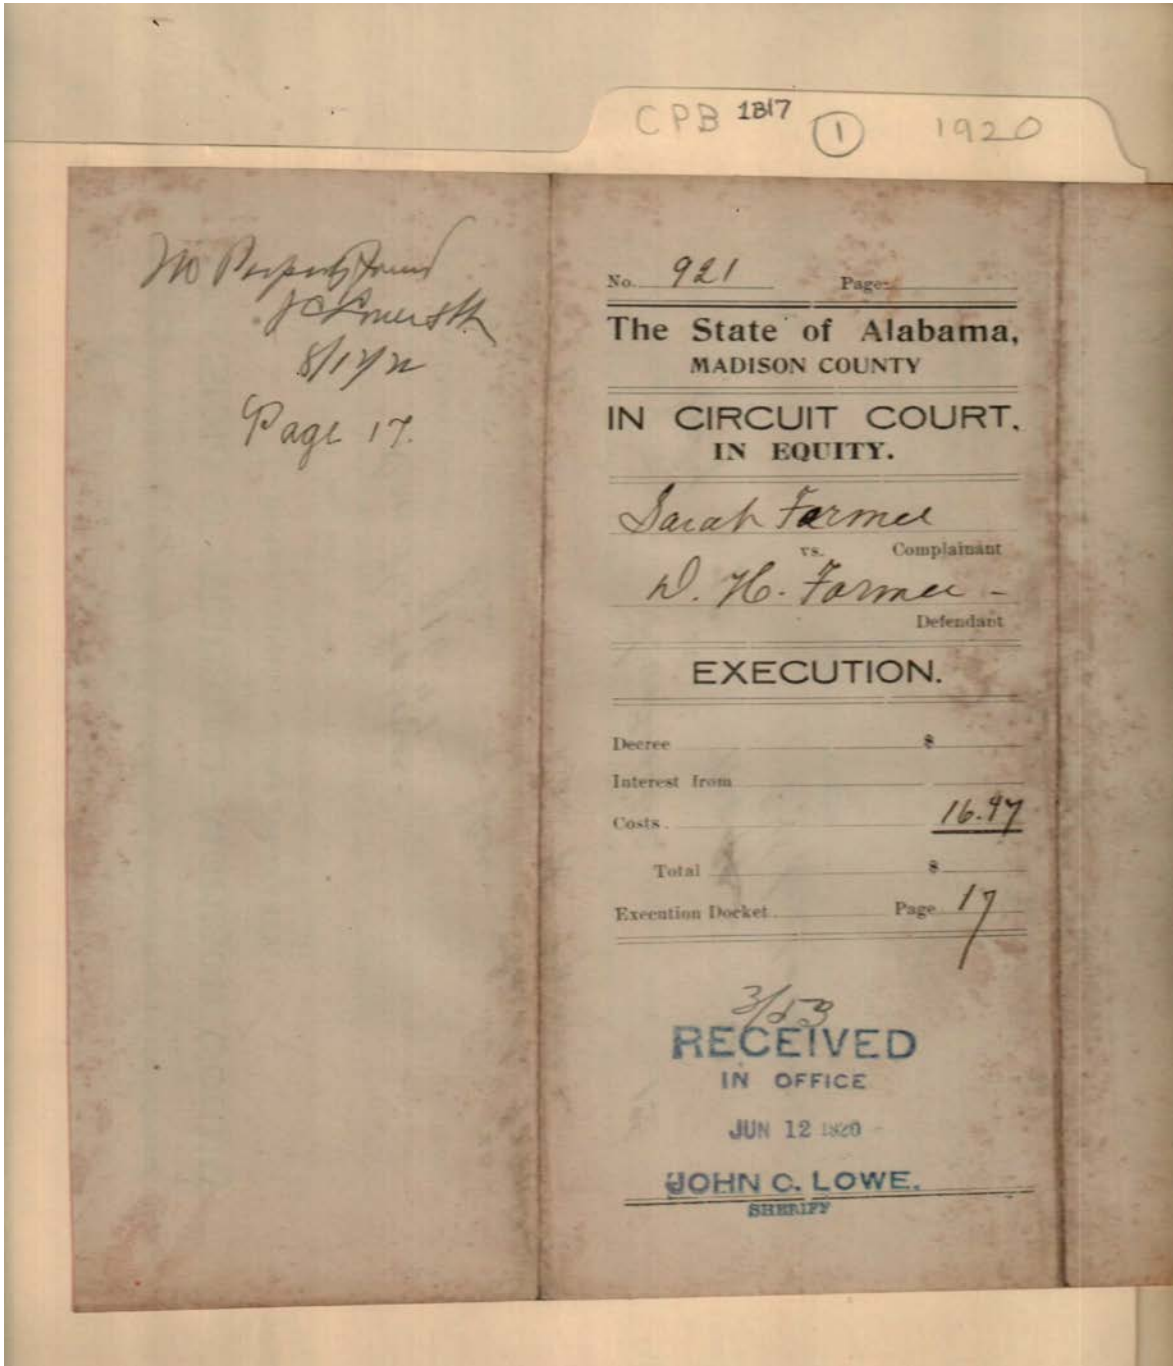 CPB 1B17 1 1920
No Property found
J C Lowe Sh
Page 17.
No. 921 Page
The State of Alabama,
MADISON COUNTY
IN CIRCUIT COURT,
IN EQUITY.
Sarah Farmer
vs. Complainant
D. H. Farmer -
Defendant
EXECUTION.
Decree $
Interest from
Costs. 16.97
Total $
Execution Docket Page 17
3/53
RECEIVED
IN OFFICE
JUN 12 1920
JOHN C. LOWE.
SHERIFF